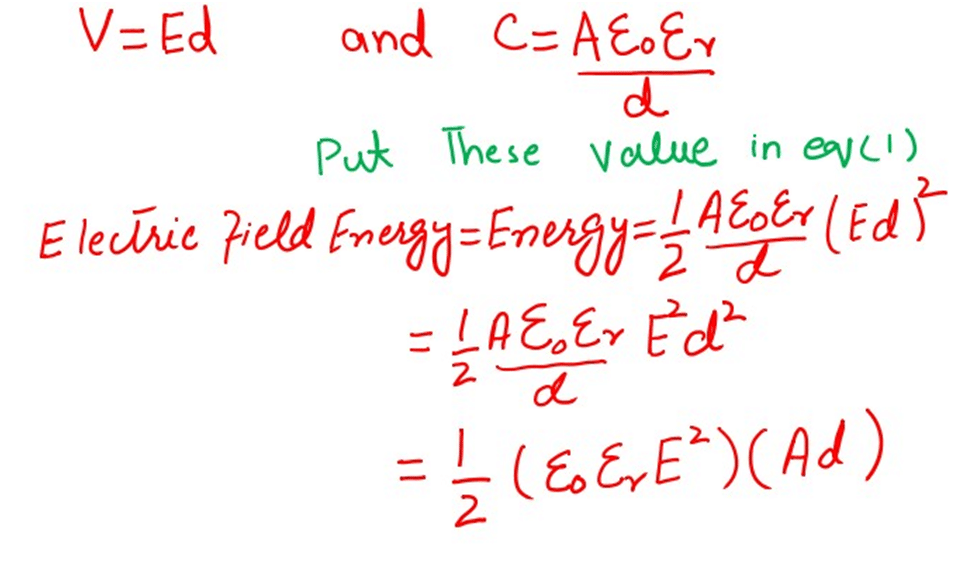 V=Ed and C=Aε₀εᵣ/d
Put These value in eq(1)
Electric Field Energy=Energy=1/2 Aε₀εᵣ/d (Ed)²
=1/2 Aε₀εᵣ/d E²d²
=1/2 (ε₀εᵣE²)(Ad)